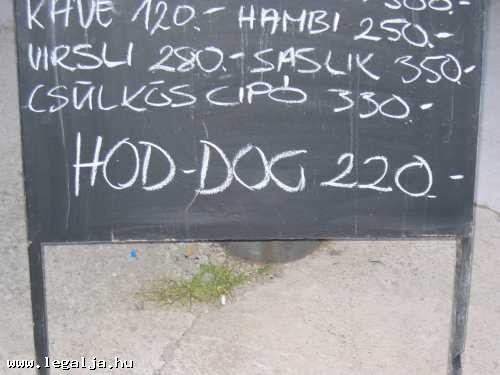 KÁVÉ 120.- HAMBI 250.-
VIRSLI 280.- SASLIK 350.-
CSÜLKÖS CIPÓ 330.-
HOD-DOG 220.-
www.legalja.hu